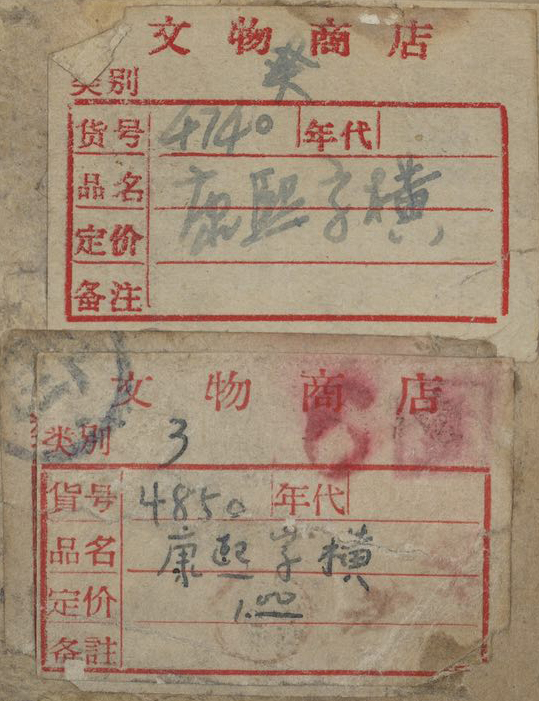 文物商店
类别 癸
货号 4740 年代
品名 康熙字横
定价
备注
文物商店
类别 3
貨号 4850 年代
品名 康熙字横
定价 1.00
备註